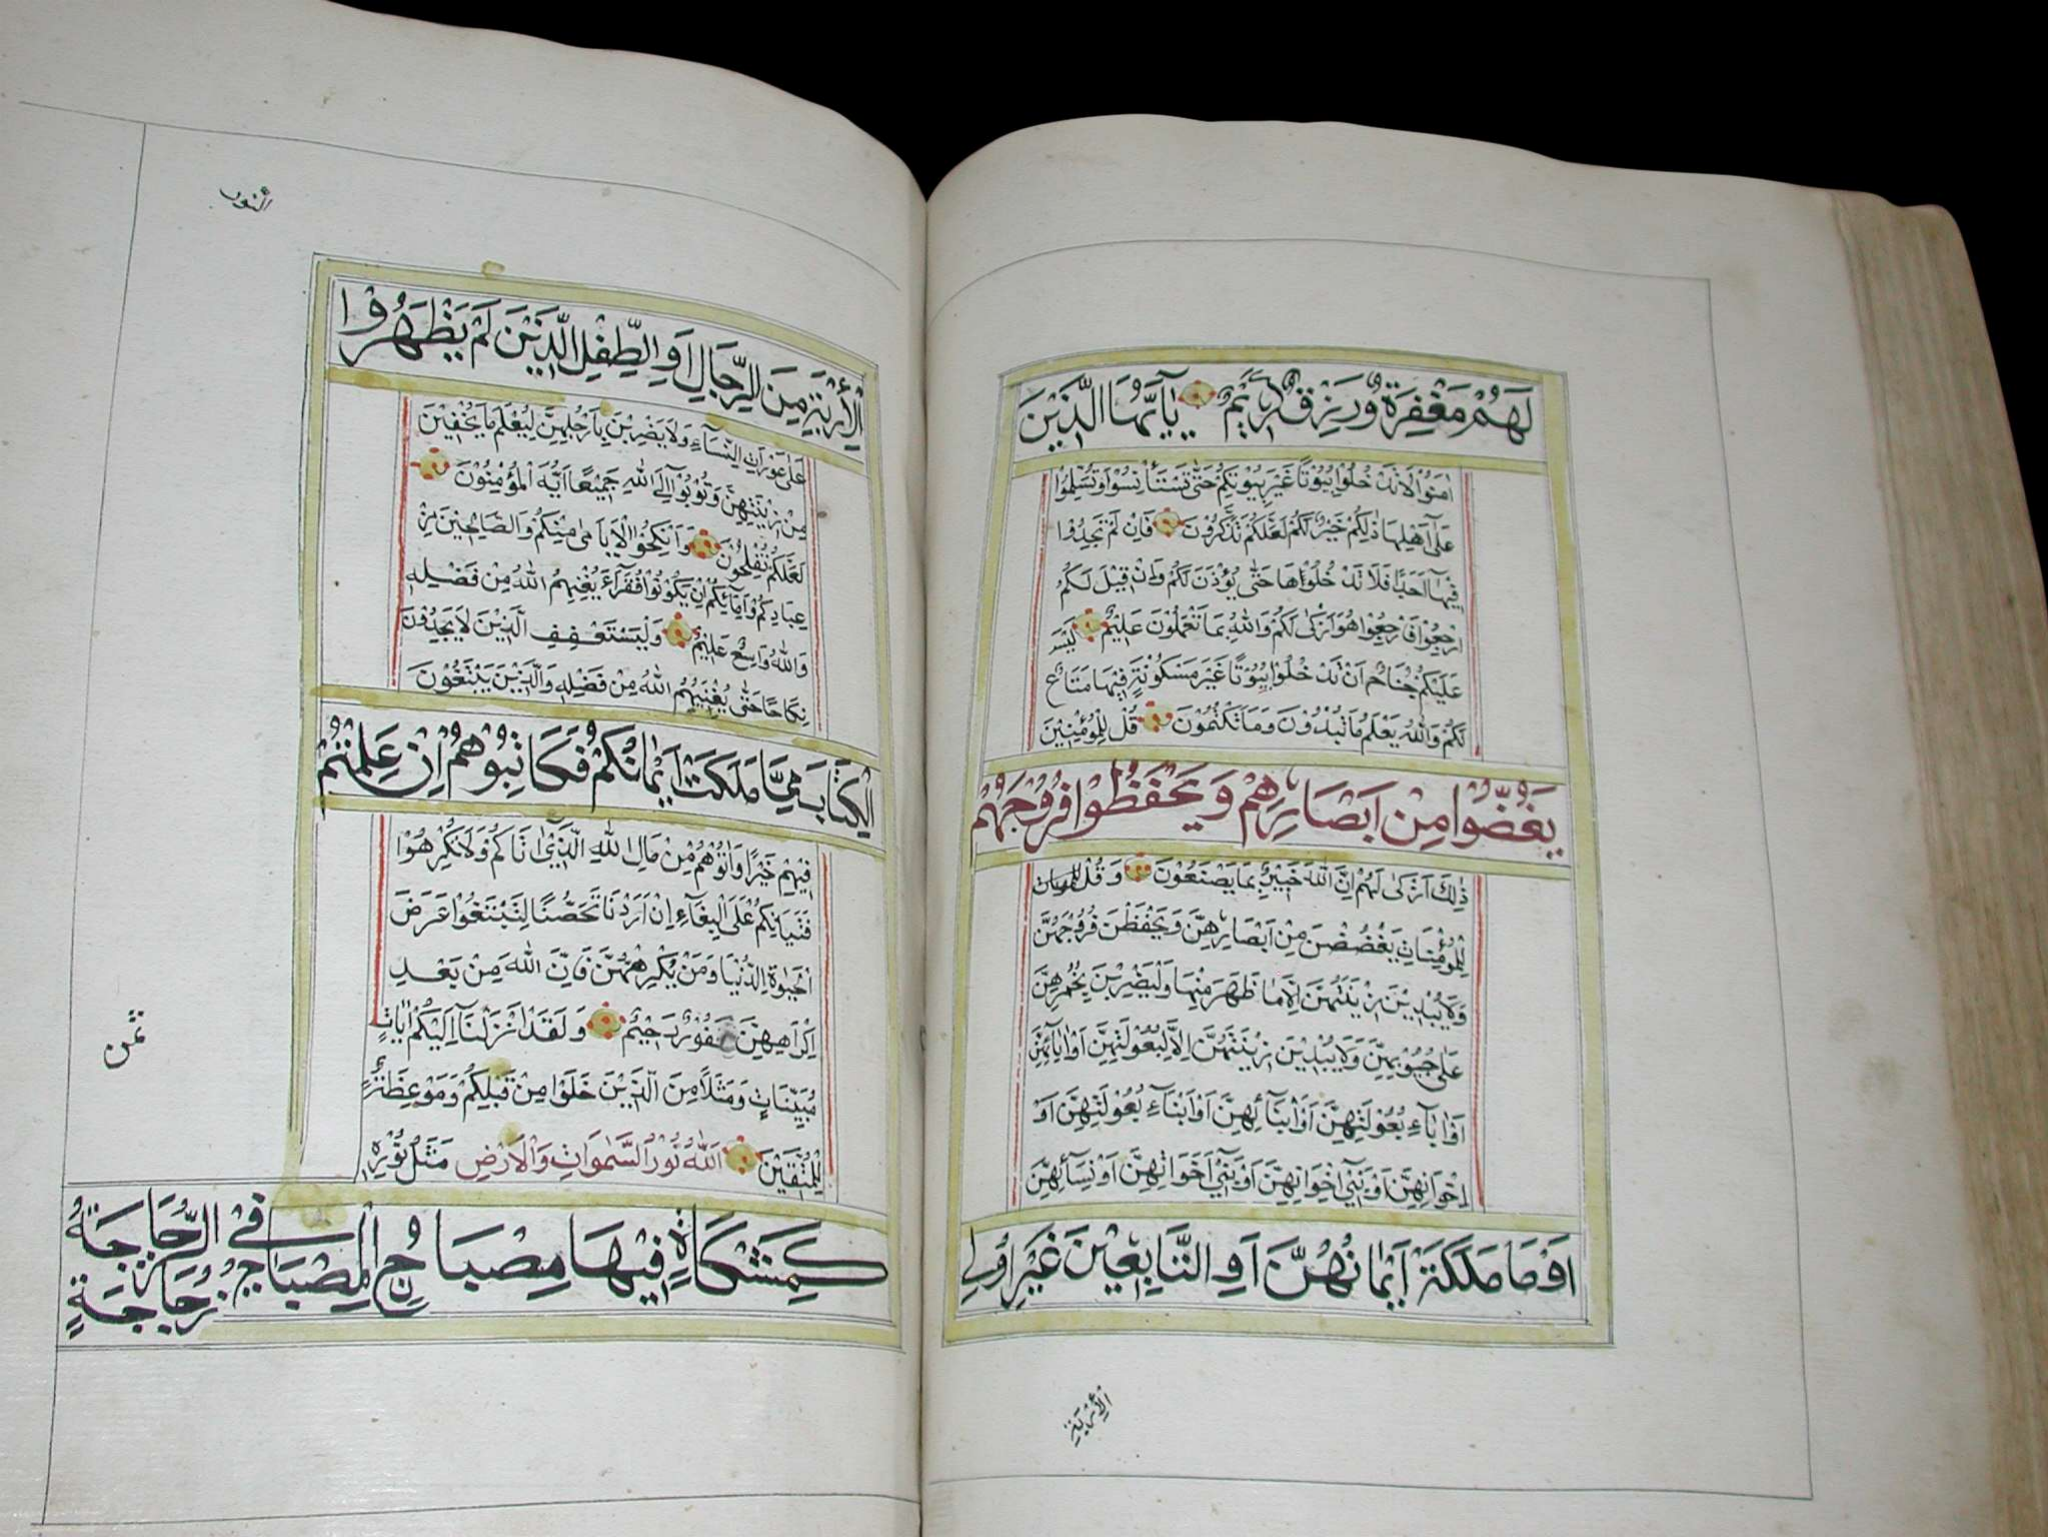 لَهُمْ مَغْفِرَةٌ وَرِزْقٌ كَرِيمٌ يَاأَيُّهَا الَّذِينَ
اٰمَنُوا لَا تَدْخُلُوا بُيُوتًا غَيْرَ بُيُوتِكُمْ حَتّٰى تَسْتَأْنِسُوا وَتُسَلِّمُوا
عَلٰى اَهْلِهَا ذٰلِكُمْ خَيْرٌ لَكُمْ لَعَلَّكُمْ تَذَكَّرُونَ فَاِنْ لَمْ تَجِدُوا
فِيهَا اَحَدًا فَلَا تَدْخُلُوهَا حَتّٰى يُؤْذَنَ لَكُمْ وَاِنْ قِيلَ لَكُمُ
ارْجِعُوا فَارْجِعُوا هُوَ اَزْكٰى لَكُمْ وَاللّٰهُ بِمَا تَعْمَلُونَ عَلِيمٌ لَيْسَ
عَلَيْكُمْ جُنَاحٌ اَنْ تَدْخُلُوا بُيُوتًا غَيْرَ مَسْكُونَةٍ فِيهَا مَتَاعٌ
لَكُمْ وَاللّٰهُ يَعْلَمُ مَا تُبْدُونَ وَمَا تَكْتُمُونَ قُلْ لِلْمُؤْمِنِينَ
يَغُضُّوا مِنْ اَبْصَارِهِمْ وَيَحْفَظُوا فُرُوجَهُمْ
ذٰلِكَ اَزْكٰى لَهُمْ اِنَّ اللّٰهَ خَبِيرٌ بِمَا يَصْنَعُونَ وَقُلْ
لِلْمُؤْمِنَاتِ يَغْضُضْنَ مِنْ اَبْصَارِهِنَّ وَيَحْفَظْنَ فُرُوجَهُنَّ
وَلَا يُبْدِينَ زِينَتَهُنَّ اِلَّا مَا ظَهَرَ مِنْهَا وَلْيَضْرِبْنَ بِخُمُرِهِنَّ
عَلٰى جُيُوبِهِنَّ وَلَا يُبْدِينَ زِينَتَهُنَّ اِلَّا لِبُعُولَتِهِنَّ اَوْ اٰبَائِهِنَّ
اَوْ اٰبَاءِ بُعُولَتِهِنَّ اَوْ اَبْنَائِهِنَّ اَوْ اَبْنَاءِ بُعُولَتِهِنَّ اَوْ
اِخْوَانِهِنَّ اَوْ بَنِي اِخْوَانِهِنَّ اَوْ بَنِي اَخَوَاتِهِنَّ اَوْ نِسَائِهِنَّ
اَوْ مَا مَلَكَةْ اَيْمَانُهُنَّ اَوِ التَّابِعِينَ غَيْرِ اُولِي
الْاُرْبَةِ
النور
الْاُرْبَةِ مِنَ الرِّجَالِ اَوِ الطِّفْلِ الَّذِينَ لَمْ يَظْهَرُوا
عَلٰى عَوْرَاتِ النِّسَاءِ وَلَا يَضْرِبْنَ بِاَرْجُلِهِنَّ لِيُعْلَمَ مَا يُخْفِينَ
مِنْ زِينَتِهِنَّ وَتُوبُوا اِلَى اللّٰهِ جَمِيعًا اَيُّهَ الْمُؤْمِنُونَ
لَعَلَّكُمْ تُفْلِحُونَ وَاَنْكِحُوا الْاَيَامٰى مِنْكُمْ وَالصَّالِحِينَ مِنْ
عِبَادِكُمْ وَاِمَائِكُمْ اِنْ يَكُونُوا فُقَرَاءَ يُغْنِهِمُ اللّٰهُ مِنْ فَضْلِهِ
وَاللّٰهُ وَاسِعٌ عَلِيمٌ وَلْيَسْتَعْفِفِ الَّذِينَ لَا يَجِدُونَ
نِكَاحًا حَتّٰى يُغْنِيَهُمُ اللّٰهُ مِنْ فَضْلِهِ وَالَّذِينَ يَبْتَغُونَ
الْكِتَابَ مِمَّا مَلَكَتْ اَيْمَانُكُمْ فَكَاتِبُوهُمْ اِنْ عَلِمْتُمْ
فِيهِمْ خَيْرًا وَاٰتُوهُمْ مِنْ مَالِ اللّٰهِ الَّذِي اٰتَاكُمْ وَلَا تُكْرِهُوا
فَتَيَاتِكُمْ عَلَى الْبِغَاءِ اِنْ اَرَدْنَ تَحَصُّنًا لِتَبْتَغُوا عَرَضَ
الْحَيٰوةِ الدُّنْيَا وَمَنْ يُكْرِهْهُنَّ فَاِنَّ اللّٰهَ مِنْ بَعْدِ
اِكْرَاهِهِنَّ غَفُورٌ رَحِيمٌ وَلَقَدْ اَنْزَلْنَا اِلَيْكُمْ اٰيَاتٍ
مُبَيِّنَاتٍ وَمَثَلًا مِنَ الَّذِينَ خَلَوْا مِنْ قَبْلِكُمْ وَمَوْعِظَةً
لِلْمُتَّقِينَ اَللّٰهُ نُورُ السَّمٰوَاتِ وَالْاَرْضِ مَثَلُ نُورِهِ
كَمِشْكَاةٍ فِيهَا مِصْبَاحٌ الْمِصْبَاحُ فِي الزُّجَاجَةُ زُجَاجَةٍ
ثمن